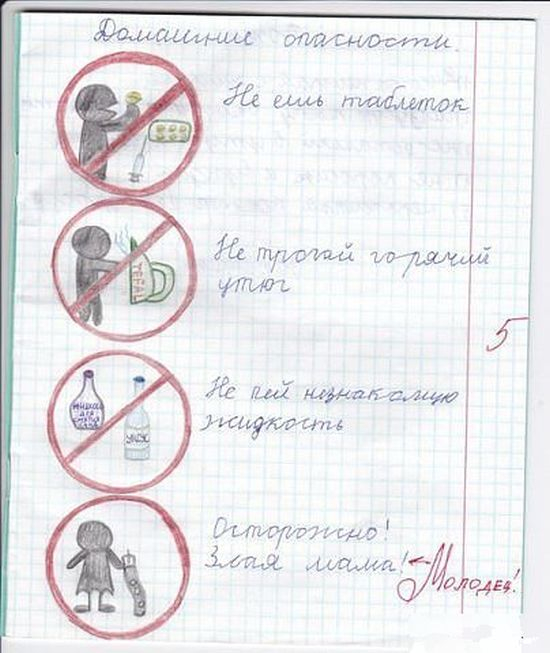 Домашние опасности.
Не ешь таблеток
TEFAL
Не трогай горячий
утюг
5
Не пей незнакомую
жидкость
жидкость
для
снятия
лака
уксус
Осторожно!
Злая мама!
Молодец!